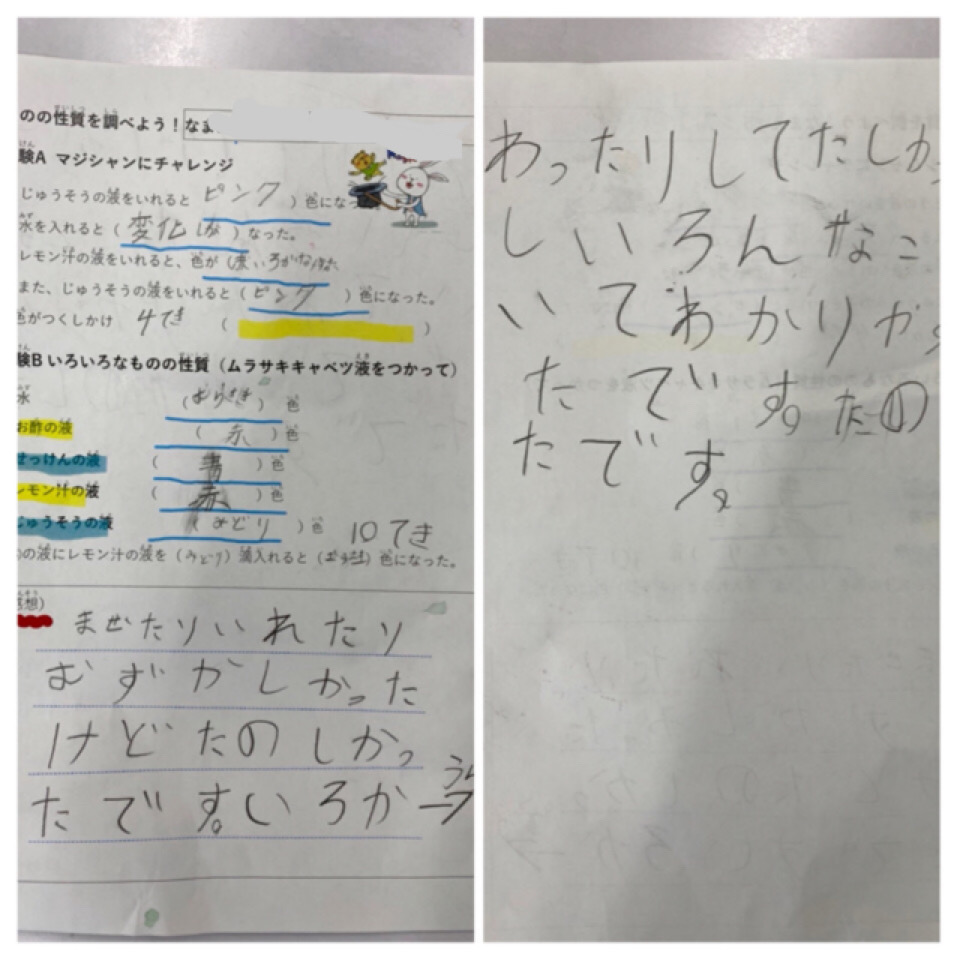 のの性質を調べよう！なま
験A マジシャンにチャレンジ
じゅうそうの液をいれると ピンク ）色になった
水を入れると（変化 ）なった。
レモン汁の液をいれると、色が（
また、じゅうそうの液をいれると（ピンク ）色になった。
色がつくしかけ 4てき （ ）
験B いろいろなものの性質（ムラサキキャベツ液をつかって）
水 （むらさき ）色
お酢の液 （ 赤 ）色
せっけんの液 （ 青 ）色
レモン汁の液 （ 赤 ）色
じゅうそうの液 （みどり ）色 10てき
の液にレモン汁の液を（ ）滴入れると（ ）色になった。
感想）
まぜたりいれたり
むずかしかった
けどたのしかっ
たです。いろか→うら
わったりしてたしか
しいろんなこ
いてわかりやす
たです。たの
たです。